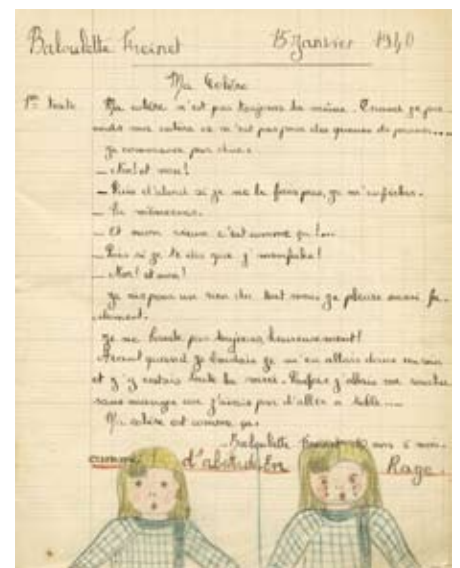 Baloulette Freinet 15 Janvier 1940
Ma Colère
1er texte Ma colère n'est pas toujours la même. Quand je pre-
nds une colère ce n'est pas pour des queues de
je commence par dire :
_ Non! et non!
_ Puis d'abord si je ne le fais pas, je m'en fiche.
_ Tu
_ Et mon vieux c'est comme ça!...
_ Puis si je te dis que j'
_ Non! et non!
je ris pour un rien du tout mais je pleure aussi fa-
cilement.
je ne boude pas toujours heureusement!
Avant quand je boudais je m'en allais dans un coin
et j'y restais toute la . Parfois j'allais me coucher
sans manger car j'avais peur d'aller à table....
Ma colère est comme ça.
Baloulette Freinet 10 ans 6 mois.
comme d'abitud. En Rage.